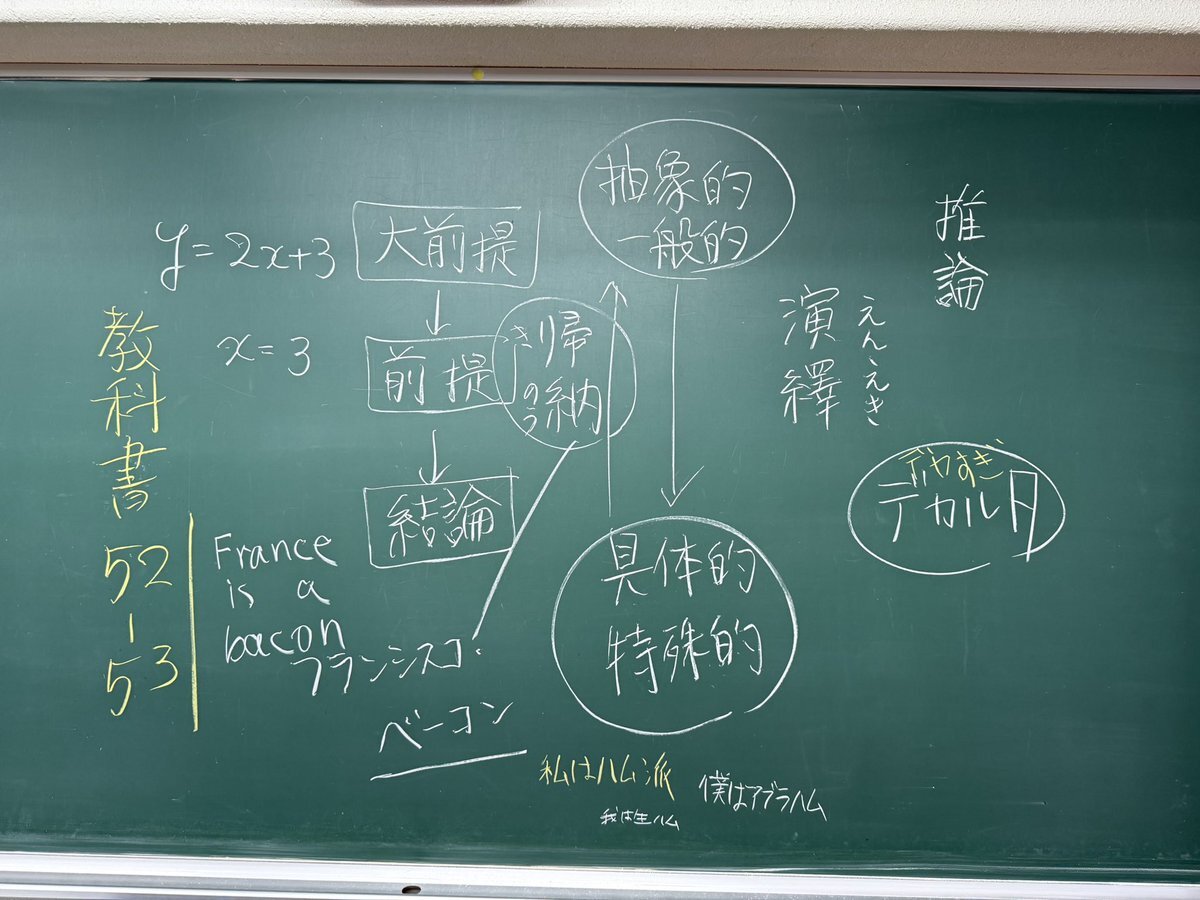 推論
演繹
えんえき
デカルト
抽象的
一般的
具体的
特殊的
帰納
きのう
大前提
前提
結論
y=2x+3
x=3
フランシスコ・
ベーコン
France
is a
bacon
教科書
52
-
53
私はハム派
我は生ハム
僕はアブラハム